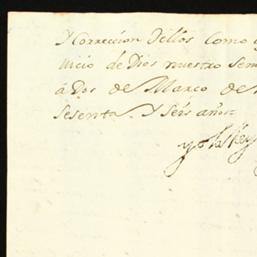 Y Correccion dellos Como
vicio de Dios nuestro Señ
á Dos de Marzo de
Sesenta. Y Seis años
yo el Rey